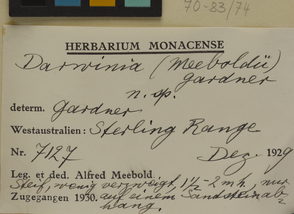 70-83/74
HERBARIUM MONACENSE
Darwinia (Meeboldii)
Gardner
n. sp.
determ. Gardner
Westaustralien: Sterling Range
Nr. 7127 Dez. 1929
Leg. et ded. Alfred Meebold.
Steif, wenig verzweigt, 1½-2 m h, nur
Zugegangen 1930. auf einem Sandsteinab-
hang.